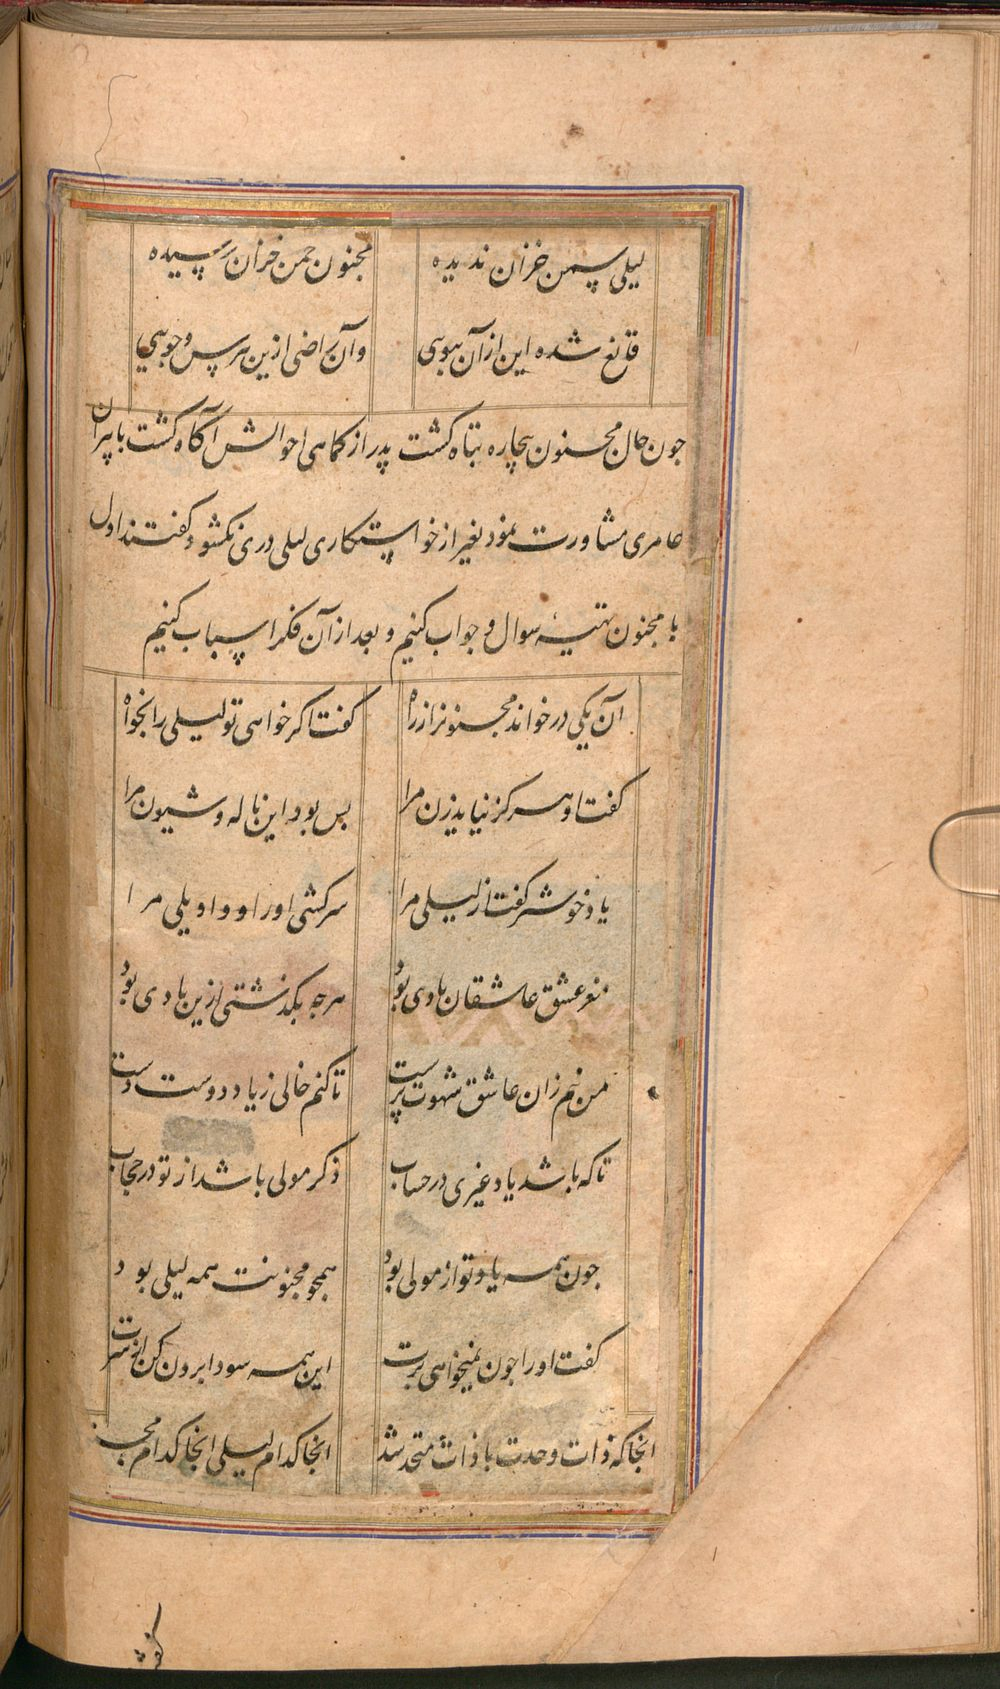 لیلی سمن خزان ندیده مجنون چمن خزان رسیده
قانع شده این ازآن ببویی وآن راضی ازین بجست وجویی
جون حال مجنون بیچاره تباه کشت پدر از کماهی احوالش آگاه کشت با پیران
عامری مشاورت نمود بغیر از خواستکاری لیلی دری نکشود کفتند اول
با مجنون تهیئه سوال و جواب کنیم و بعد ازآن فکر اسباب کنیم
آن یکی در خواند مجنونرا ز راه کفت اکر خواهی تو لیلی را بخواه
کفت او هرکز نیاید زن مرا بس بود این ناله و شیون مرا
یاد خوشتر کفت از لیلی مرا سرکشی او را و واویلی مرا
مغز عشق عاشقان یادی بود هرجه بکذشتی ازین بادی بود
من نیم زان عاشق شهوت پرست تا کنم خالی ز یاد دوست دست
تا که باشد یاد غیری در حساب ذکر مولی باشد از تو در حجاب
جون همه یاد تو از مولی بود همجو مجنونت همه لیلی بود
کفت او را جون نمیخواهی برت این همه سودا برون کن از سرت
انجا که ذات وحدت با ذات متحد شد انجا کدام لیلی انجا کدام مجنون